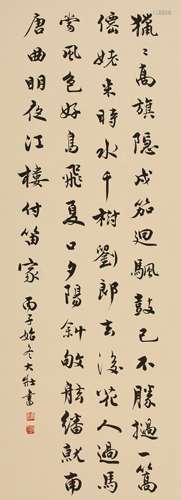 獵〻高旗隱戍笳迴颿鼓已不勝撾一篙
僊姥來時水千樹劉郎去後花人過馬
當風色好鳥飛夏口夕陽斜敂舷繙就南
唐曲明夜江樓付笛家 丙子始冬大壯書